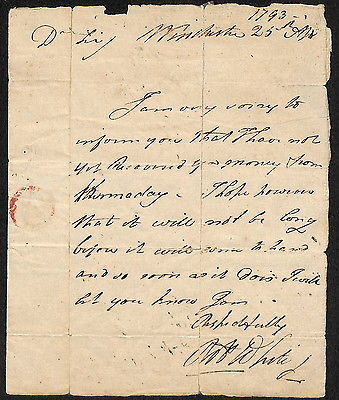 1793
Dr Sir Winchester 25th Apl
I am very sorry to
inform you that I have not
yet Received yr money from
I hope however
that it will not be long
before it will come to hand
and so soon as it does I will
let you know I am
Respectfully
Robt White